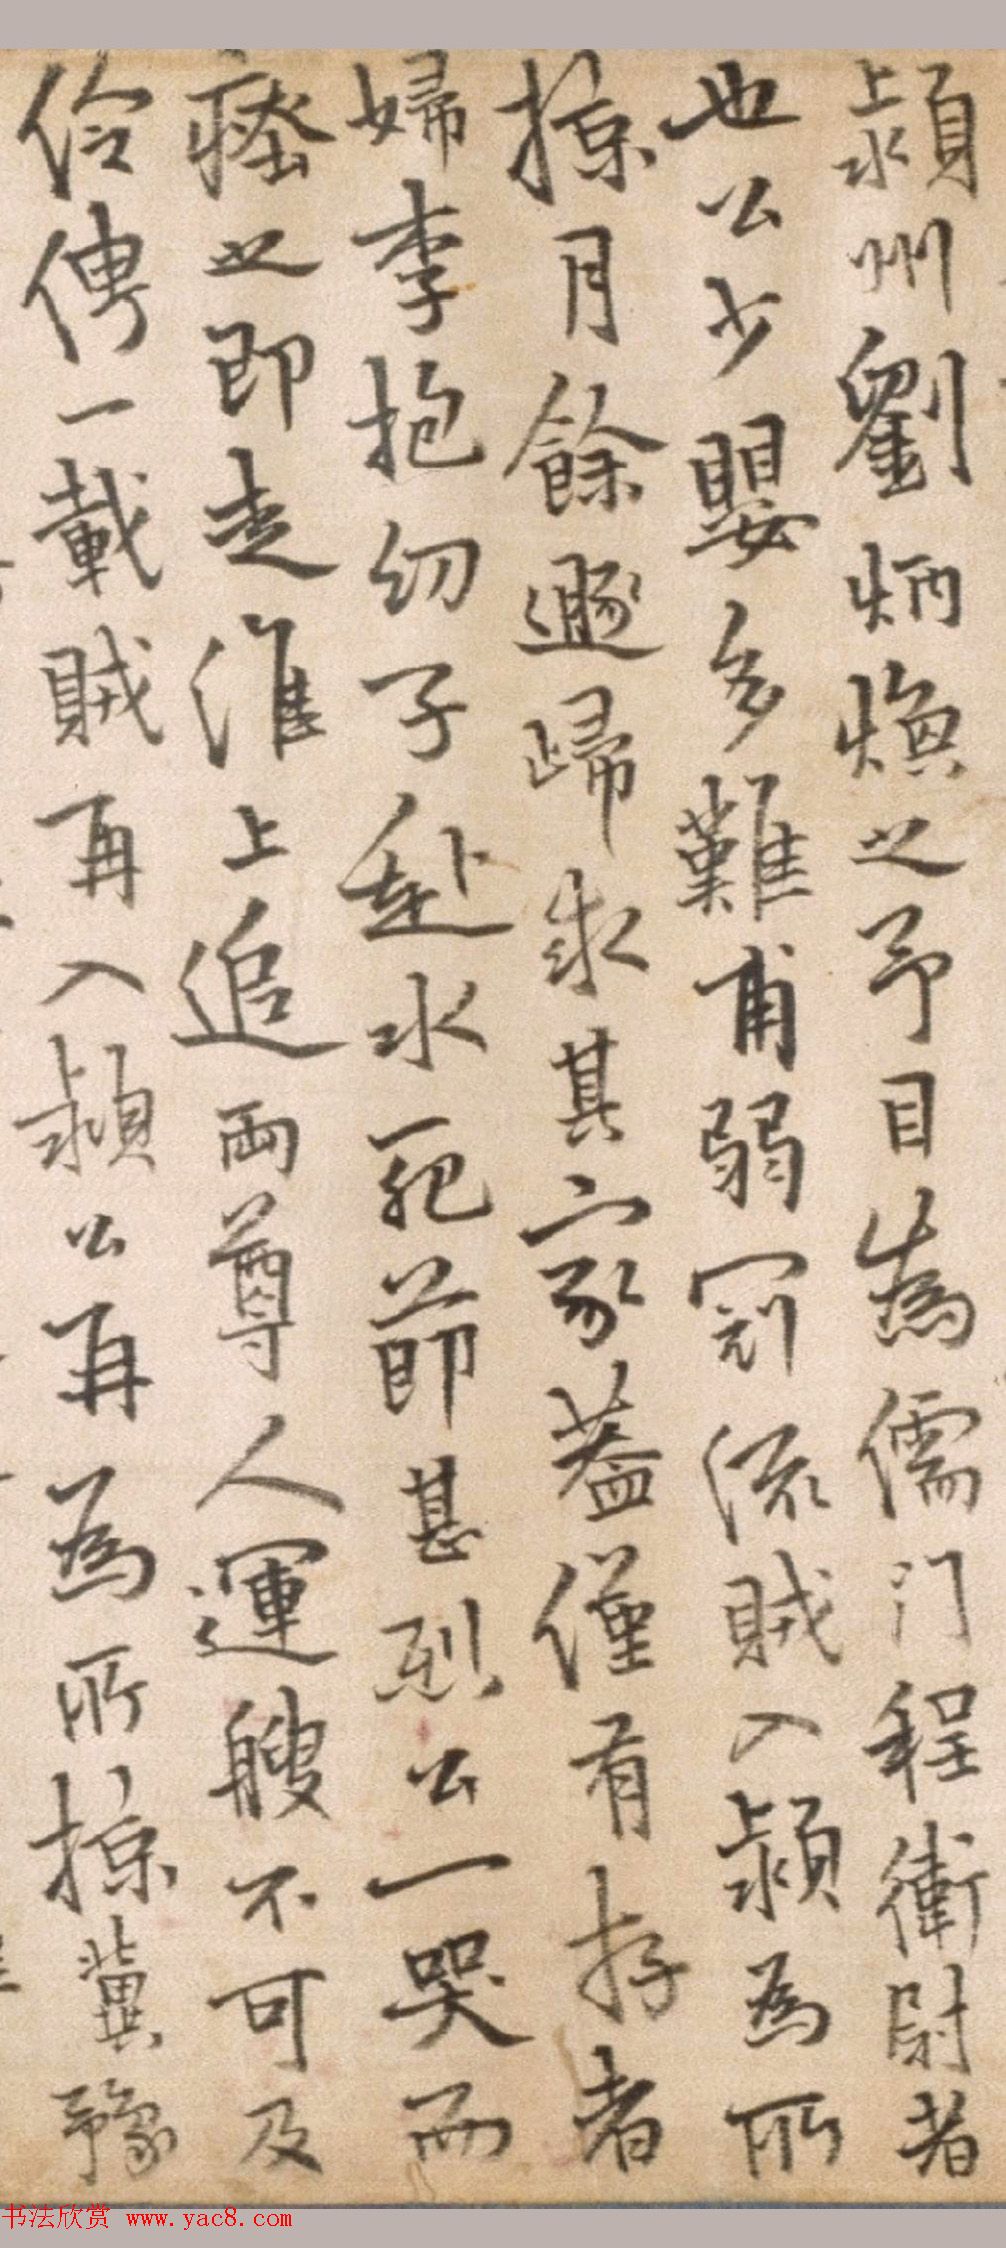 潁州劉炳煥之予目為儒門程衛尉者
也公少嬰多難甫弱冠流賊入潁為所
掠月餘遯歸求其家蓋僅有存者
婦李抱幼子赴水死節甚烈公一哭而
瘞之即走淮上追兩尊人運艘不可及
伶俜一載賊再入潁公再為所掠冀豫
书法欣赏 www.yac8.com